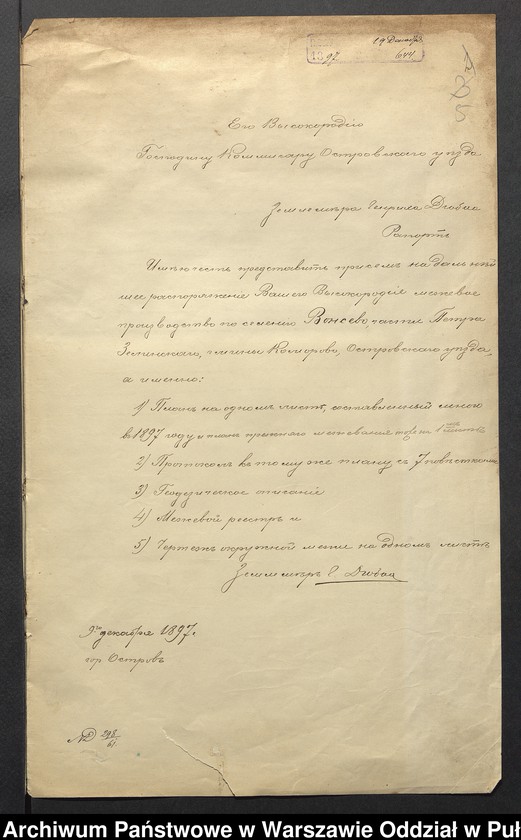 19 Декабр
1897 644
Его Высокородію
Господину Коммисару Островскаго уѣзда
Землемѣра Генриха
Рапортъ
Имѣю честь представить при семъ на дальнѣй
шее распоряженіе Вашего Высокородія межевое
производство по селенію Вонсево части Петра
Зелинскаго, гмины Коморово, Островскаго уѣзда,
а именно:
1) Планъ на одномъ листѣ, составленный мною
въ 1897 году и планъ прежняго межеванія
2) Протоколъ къ тому же плану съ 7 повѣстками
3) Геодезическое описаніе
4) Межевой реестръ и
5) Чертежъ окружной межи на одномъ листѣ
Землемѣръ Г.
9го декабря 1897 г.
гор Островъ
№ 298/61
Archiwum Państwowe w Warszawie Oddział w Puł